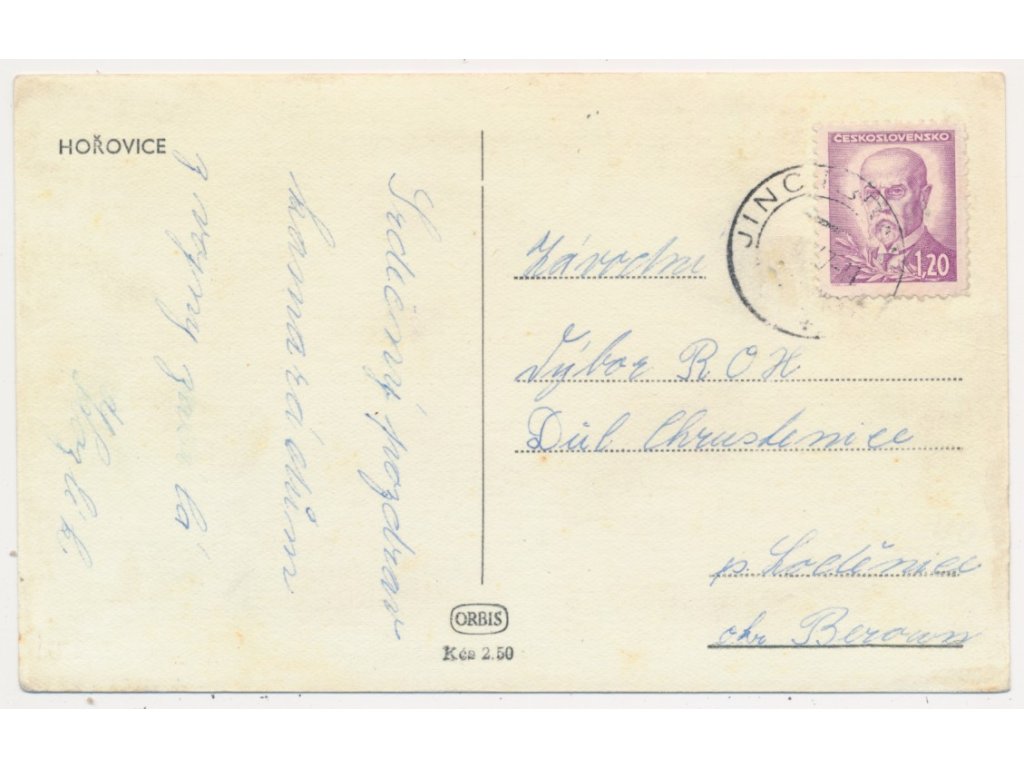 HOŘOVICE
Srdečný pozdrav
kamarádům
z vojny
ČESKOSLOVENSKO
1,20
JINC
Závodní
Výbor R O H
Důl Chrustenice
p. Loděnice
okr Beroun
ORBIS
Kčs 2.50